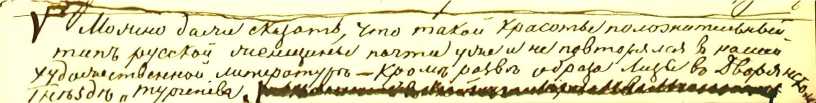 Можно даже сказать, что такой красоты положительный
типъ русской женщины почти уже и не повторялся въ нашей
художественной литературѣ — кромѣ развѣ образа Лизы въ Дворянскомъ
Гнѣздѣ, Тургенева